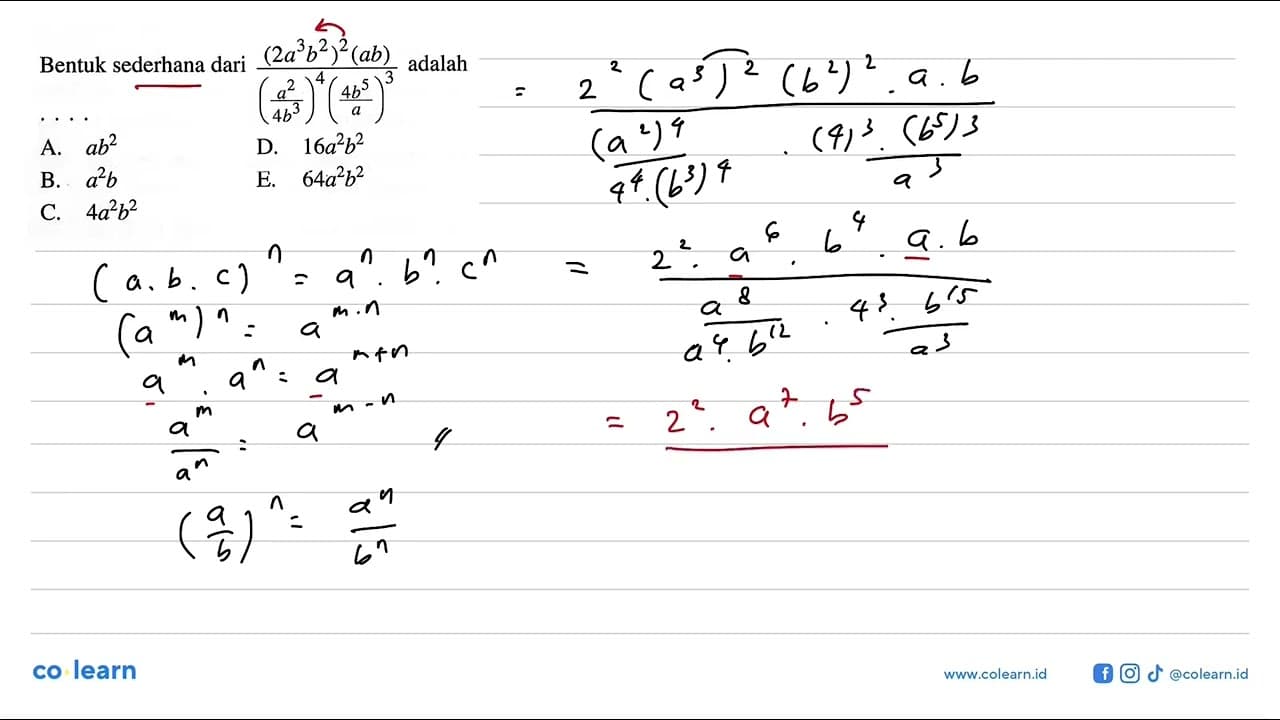 Bentuk sederhana dari \frac{(2a^3b^2)^2(ab)}{\left(\frac{a^2}{4b^3}\right)^4\left(\frac{4b^5}{a}\right)^3} adalah
. . . .
A. ab^2
B. a^2b
C. 4a^2b^2
D. 16a^2b^2
E. 64a^2b^2
= \frac{2^2 (a^3)^2 (b^2)^2 . a . b}{\frac{(a^2)^4}{4^4 . (b^3)^4} . \frac{(4)^3 . (b^5)^3}{a^3}}
(a . b . c)^n = a^n . b^n . c^n
(a^m)^n = a^{m.n}
a^m . a^n = a^{m+n}
\frac{a^m}{a^n} = a^{m-n}
\left(\frac{a}{b}\right)^n = \frac{a^n}{b^n}
= \frac{2^2 . a^6 . b^4 . a . b}{\frac{a^8}{a^4 . b^{12}} . \frac{4^3 . b^{15}}{a^3}}
= 2^2 . a^7 . b^5
co learn
www.colearn.id
@colearn.id